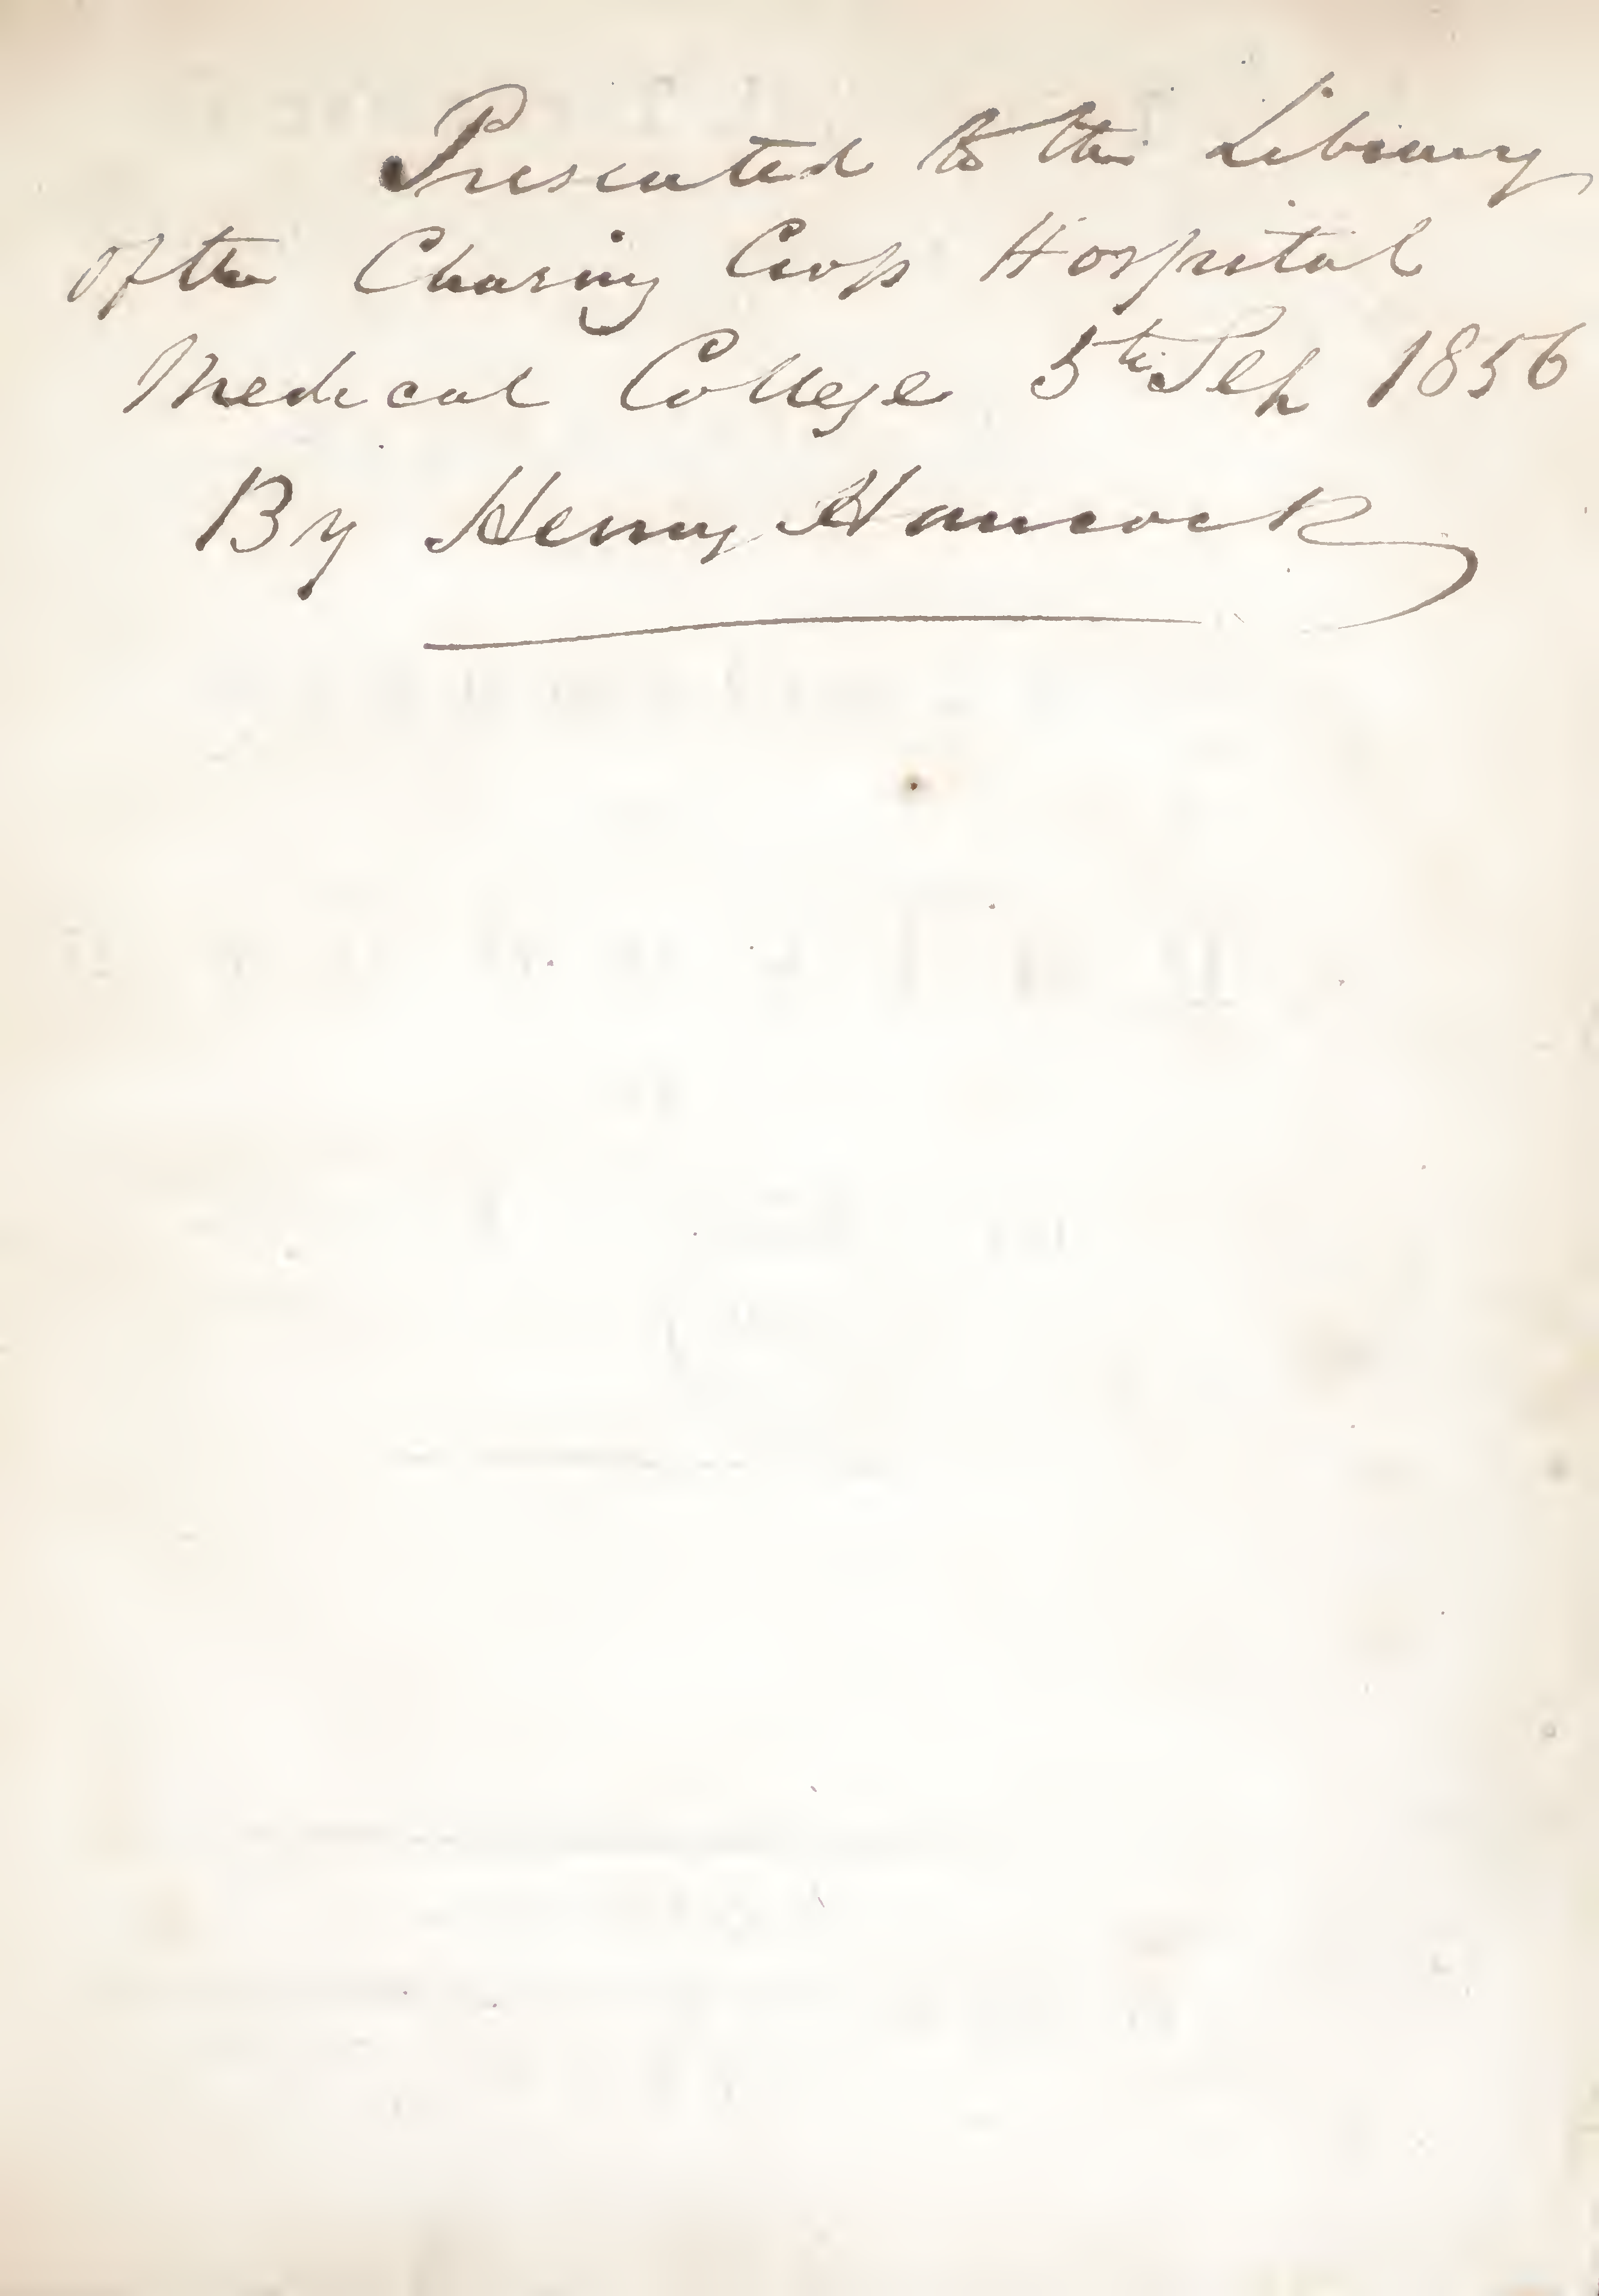 Presented to the Library
of the Charing Cross Hospital
Medical College 5th Sep 1856
By Henry Hancock